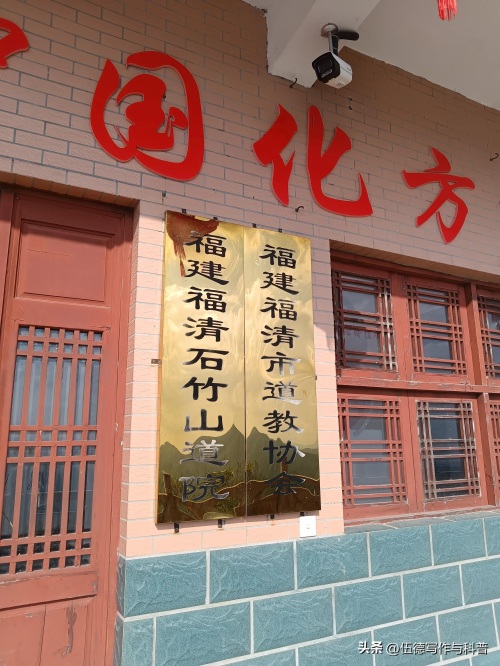 中国化方
福建福清石竹山道院
福建福清市道教协会
头条 @伍德写作与科普